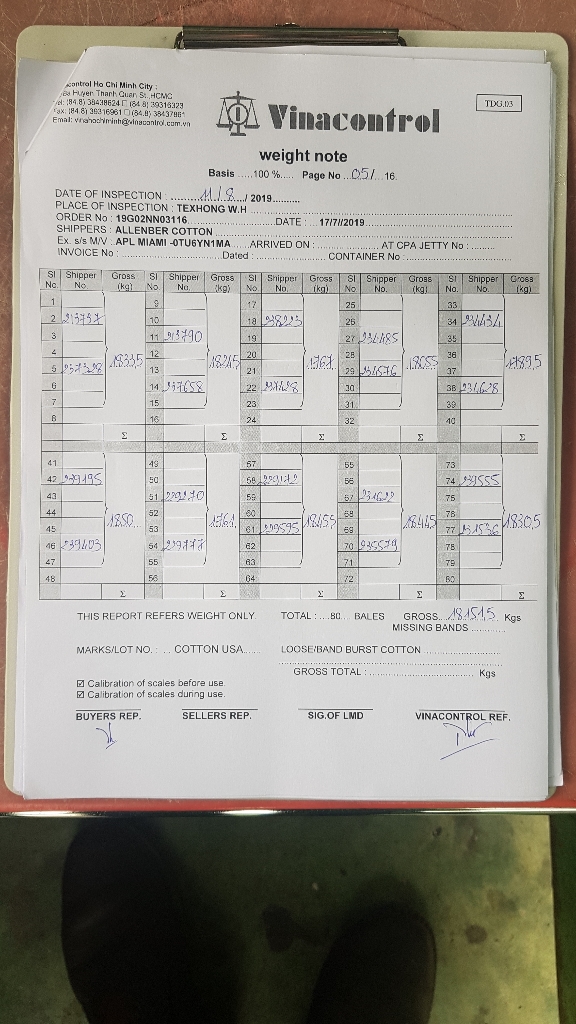 control Ho Chi Minh City :
Huyen Thanh Quan St.,HCMC
Tel: (84.8) 38438624 □ (84.8) 39316323
Fax: (84.8) 39316961 □ (84.8) 38437861
Email: vinahochiminh@vinacontrol.com.vn
TDG.03
Vinacontrol
weight note
Basis .....100 %..... Page No ...05/....16.
DATE OF INSPECTION : ........11/8.../ 2019..........
PLACE OF INSPECTION : TEXHONG W.H
ORDER No : 19G02NN03116 DATE : 17/7//2019
SHIPPERS : ALLENBER COTTON
Ex. s/s M/V : APL MIAMI -0TU6YN1MA ARRIVED ON : AT CPA JETTY No :
INVOICE No : Dated : CONTAINER No
SI No. Shipper No. Gross (kg) SI No. Shipper No. Gross (kg) SI No. Shipper No. Gross (kg) SI No. Shipper No. Gross (kg) SI No. Shipper No. Gross (kg)
1 9 17 25 33
2 213737 10 18 238223 26 34 234434
3 11 213790 19 27 234485 35
4 1833,5 12 1821,5 20 1767 28 1805,5 36 1789,5
5 237328 13 21 29 234576 37
6 14 237658 22 237428 30 38 234628
7 15 23 31 39
8 16 24 32 40
Σ Σ Σ Σ Σ
41 49 57 65 73
42 239195 50 58 229172 66 74 239555
43 51 229270 59 67 231622 75
44 1850 52 1761 60 1845,5 68 1844,5 76 1830,5
45 53 61 229595 69 77 231536
46 239403 54 229777 62 70 235579 78
47 55 63 71 79
48 56 64 72 80
Σ Σ Σ Σ Σ
THIS REPORT REFERS WEIGHT ONLY. TOTAL : ...80... BALES GROSS...18151,5 Kgs
MISSING BANDS
MARKS/LOT NO. : ... COTTON USA...... LOOSE/BAND BURST COTTON
GROSS TOTAL : Kgs
☑ Calibration of scales before use.
☑ Calibration of scales during use.
BUYERS REP. SELLERS REP. SIG.OF LMD VINACONTROL REF.